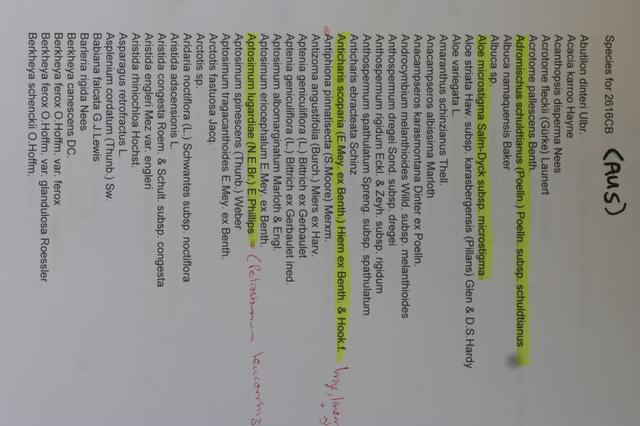 Species for 2616CB (AUS)
Abutilon dinteri Ulbr.
Acacia karroo Hayne
Acanthopsis disperma Nees
Acrotome fleckii (Gürke) Launert
Acrotome pallescens Benth.
Adromischus schuldtianus (Poelln.) Poelln. subsp. schuldtianus
Albuca namaquensis Baker
Albuca sp.
Aloe microstigma Salm-Dyck subsp. microstigma
Aloe striata Haw. subsp. karasbergensis (Pillans) Glen & D.S.Hardy
Aloe variegata L.
Amaranthus schinzianus Thell.
Anacampseros albissima Marloth
Anacampseros karasmontana Dinter ex Poelln.
Androcymbium melanthioides Willd. subsp. melanthioides
Anthospermum dregei Sond. subsp. dregei
Anthospermum rigidum Eckl. & Zeyh. subsp. rigidum
Anthospermum spathulatum Spreng. subsp. spathulatum
Anticharis ebracteata Schinz
Anticharis scoparia (E.Mey. ex Benth.) Hiern ex Benth. & Hook.f.
Antiphiona pinnatisecta (S.Moore) Merxm.
Antizoma angustifolia (Burch.) Miers ex Harv.
Aptenia geniculiflora (L.) Bittrich ex Gerbaulet
Aptenia geniculiflora (L.) Bittrich ex Gerbaulet ined.
Aptosimum albomarginatum Marloth & Engl.
Aptosimum eriocephalum E.Mey. ex Benth.
Aptosimum lugardiae (N.E.Br.) E.Phillips = (Peliostomum leucorrhiz
Aptosimum spinescens (Thunb.) Weber
Aptosimum tragacanthoides E.Mey. ex Benth.
Arctotis fastuosa Jacq.
Arctotis sp.
Aridaria noctiflora (L.) Schwantes subsp. noctiflora
Aristida adscensionis L.
Aristida congesta Roem. & Schult. subsp. congesta
Aristida engleri Mez var. engleri
Aristida rhiniochloa Hochst.
Asparagus retrofractus L.
Asplenium cordatum (Thunb.) Sw.
Babiana falcata G.J.Lewis
Barleria rigida Nees
Berkheya canescens DC.
Berkheya ferox O.Hoffm. var. ferox
Berkheya ferox O.Hoffm. var. glandulosa Roessler
Berkheya schenckii O.Hoffm.